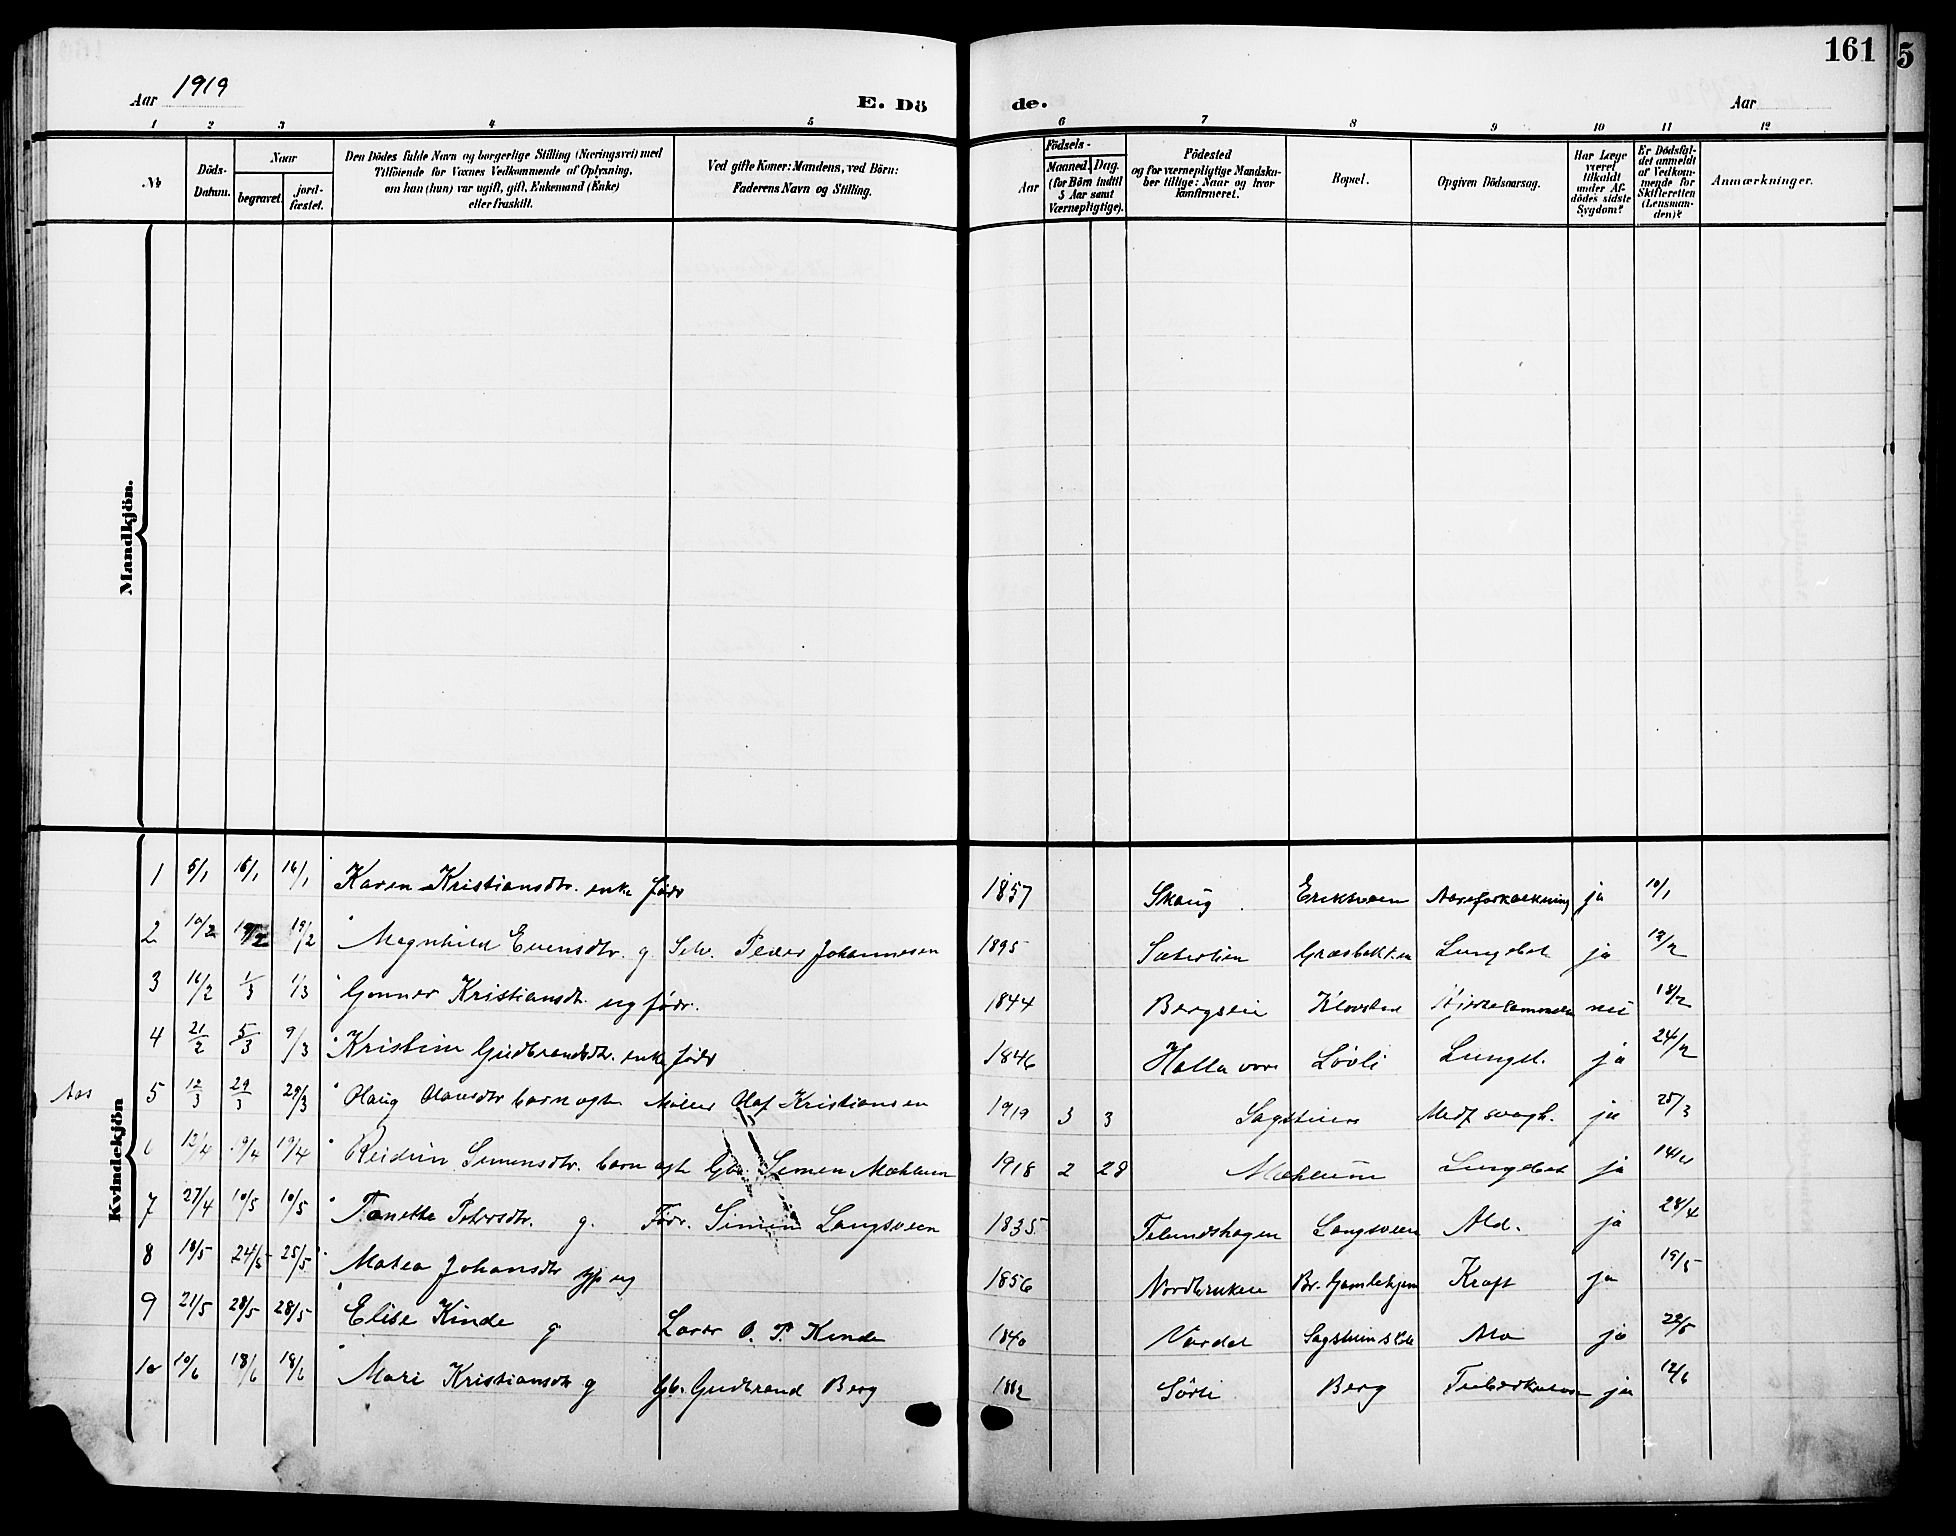 161
5
Aar 1919
E. Dö
de.
Aar
1 2 3 4 5 6 7 8 9 10 11 12
№
Döds-
Datum.
Naar
begravet.
jord-
fæstet.
Den Dödes fulde Navn og borgerlige Stilling (Næringsvei) med
Tilföiende for Voxnes Vedkommende af Oplysning,
om han (hun) var ugift, gift, Enkemand (Enke)
eller fraskilt.
Ved gifte Koner: Mandens, ved Börn:
Faderens Navn og Stilling.
Födsels-
Aar
Maaned.
Dag.
(for Börn indtil
5 Aar samt
Værnepligtige).
Födested
og for værnepligtige Mandska-
ber tillige: Naar og hvor
konfirmeret.
Bopæl.
Opgiven Dödsaarsag.
Har Læge
været
tilkaldt
under Af-
dödes sidste
Sygdom?
Er Dödsfal-
det anmeldt
af Vedkom-
mende for
Skifteretten
(Lensman-
den)?
Anmærkninger.
Mandkjön.
Kvindekjön
1 5/1 16/1 16/1 Karen Kristiansdtr. enke födr 1857 Skaug Eriksveen Aareforkalkning ja 10/1
2 10/2 19/2 19/2 Magnhild Evensdtr. g Selv. Peder Johannesen 1895 Sæterlien Græsbakken Lungebet ja 12/2
3 16/2 1/3 1/3 Gunner Kristiansdtr. ug födr. 1844 Bergseie Klovstad nei 18/2
4 21/2 5/3 9/3 Kristine Gudbrandsdtr. enke födr 1846 Lövli Lungeb. ja 24/2
5 12/3 29/3 29/3 Olaug Olavsdtr barn ægte Möller Olaf Kristiansen 1919 3 3 Sagstuen Medf svagh. ja 25/3
6 12/4 19/4 19/4 Reidun Simensdtr. barn ægte Gbr. Simen Mæhlum 1918 2 28 Mæhlum Lungebet ja 14/4
7 27/4 10/5 10/5 Tonette Petersdtr. g. Födr. Simen Langsveen 1835 Langsveen Ald. ja 28/4
8 18/5 24/5 25/5 Matea Johansdtr syp ug 1856 Br. Gamlehjem Kræft ja 19/5
9 21/5 28/5 28/5 Elise Kinde g Lærer O. P. Kinde 1840 Vardal ja 22/5
10 10/6 18/6 18/6 Mari Kristiansdtr g Gb. Gudbrand Berg Sörli Berg Tuberkulose ja 12/6